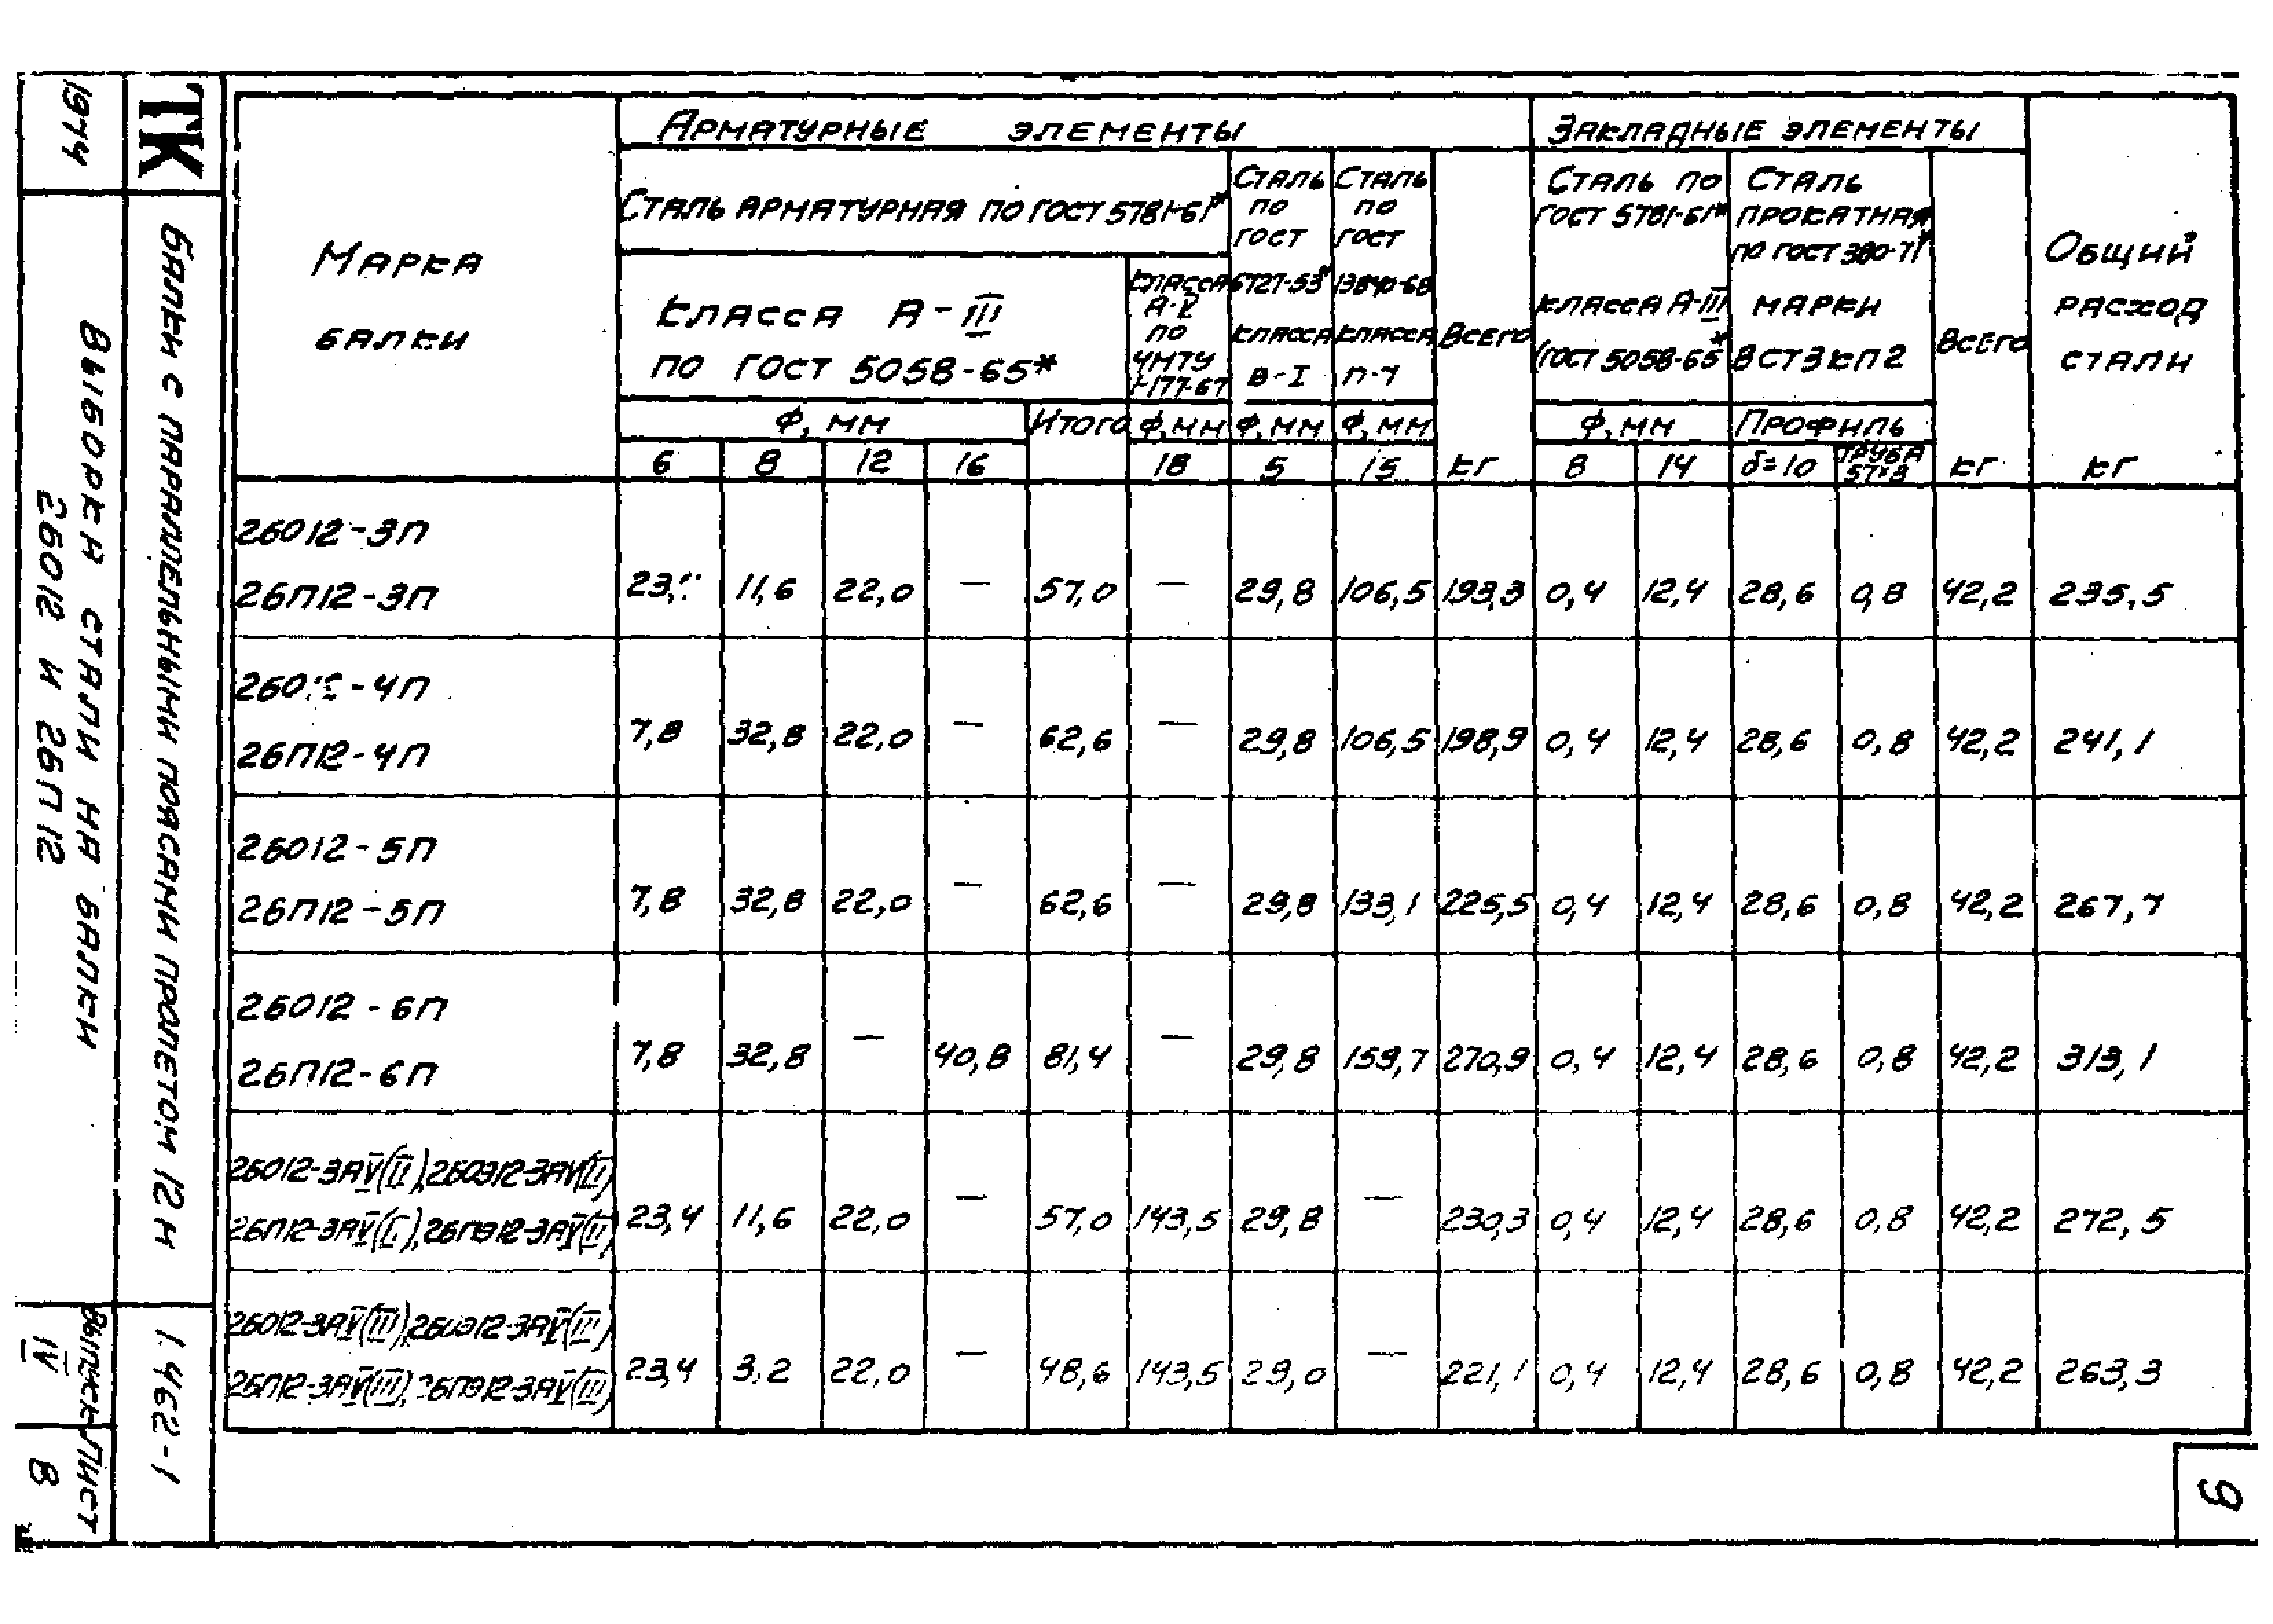 1974
ТК
Балки с параллельными поясами пролетом 12 м
Выборки стали на балки
2БО12 и 2БП12
Выпуск
IV
Лист
8
1.462-1
9
Марка балки
Арматурные элементы
Закладные элементы
Общий расход стали
кг
Сталь арматурная по ГОСТ 5781-61*
Класса А-III
по ГОСТ 5058-65*
Класса А-V по ЧМТУ 1-177-67
Сталь по ГОСТ 6727-53* класса В-I
Сталь по ГОСТ 13840-68 класса П-7
Всего
кг
Сталь по ГОСТ 5781-61*
класса А-III
(ГОСТ 5058-65*
Сталь прокатная по ГОСТ 380-71*
марки
ВСТ3КП2
Всего
кг
Ф, мм Итого Ф, мм Ф, мм Ф, мм Ф, мм Профиль
6 8 12 16 18 5 15 8 14 δ=10 Труба 57×8
2БО12-3П
2БП12-3П 23, 11,6 22,0 — 57,0 — 29,8 106,5 193,3 0,4 12,4 28,6 0,8 42,2 235,5
-4П
2БП12-4П 7,8 32,8 22,0 — 62,6 — 29,8 106,5 198,9 0,4 12,4 28,6 0,8 42,2 241,1
2БО12-5П
2БП12-5П 7,8 32,8 22,0 — 62,6 — 29,8 133,1 225,5 0,4 12,4 28,6 0,8 42,2 267,7
2БО12-6П
2БП12-6П 7,8 32,8 — 40,8 81,4 — 29,8 159,7 270,9 0,4 12,4 28,6 0,8 42,2 313,1
2БО12-3АV(II), 2БОЭ12-3АV(II)
2БПЭ12-3АV(II) 23,4 11,6 22,0 — 57,0 143,5 29,8 — 230,3 0,4 12,4 28,6 0,8 42,2 272,5
2БО12-3АV(III), 2БОЭ12-3АV(III)
2БП12-3АV(III), 2БПЭ12-3АV(III) 23,4 3,2 22,0 — 48,6 143,5 29,0 — 221,1 0,4 12,4 28,6 0,8 42,2 263,3